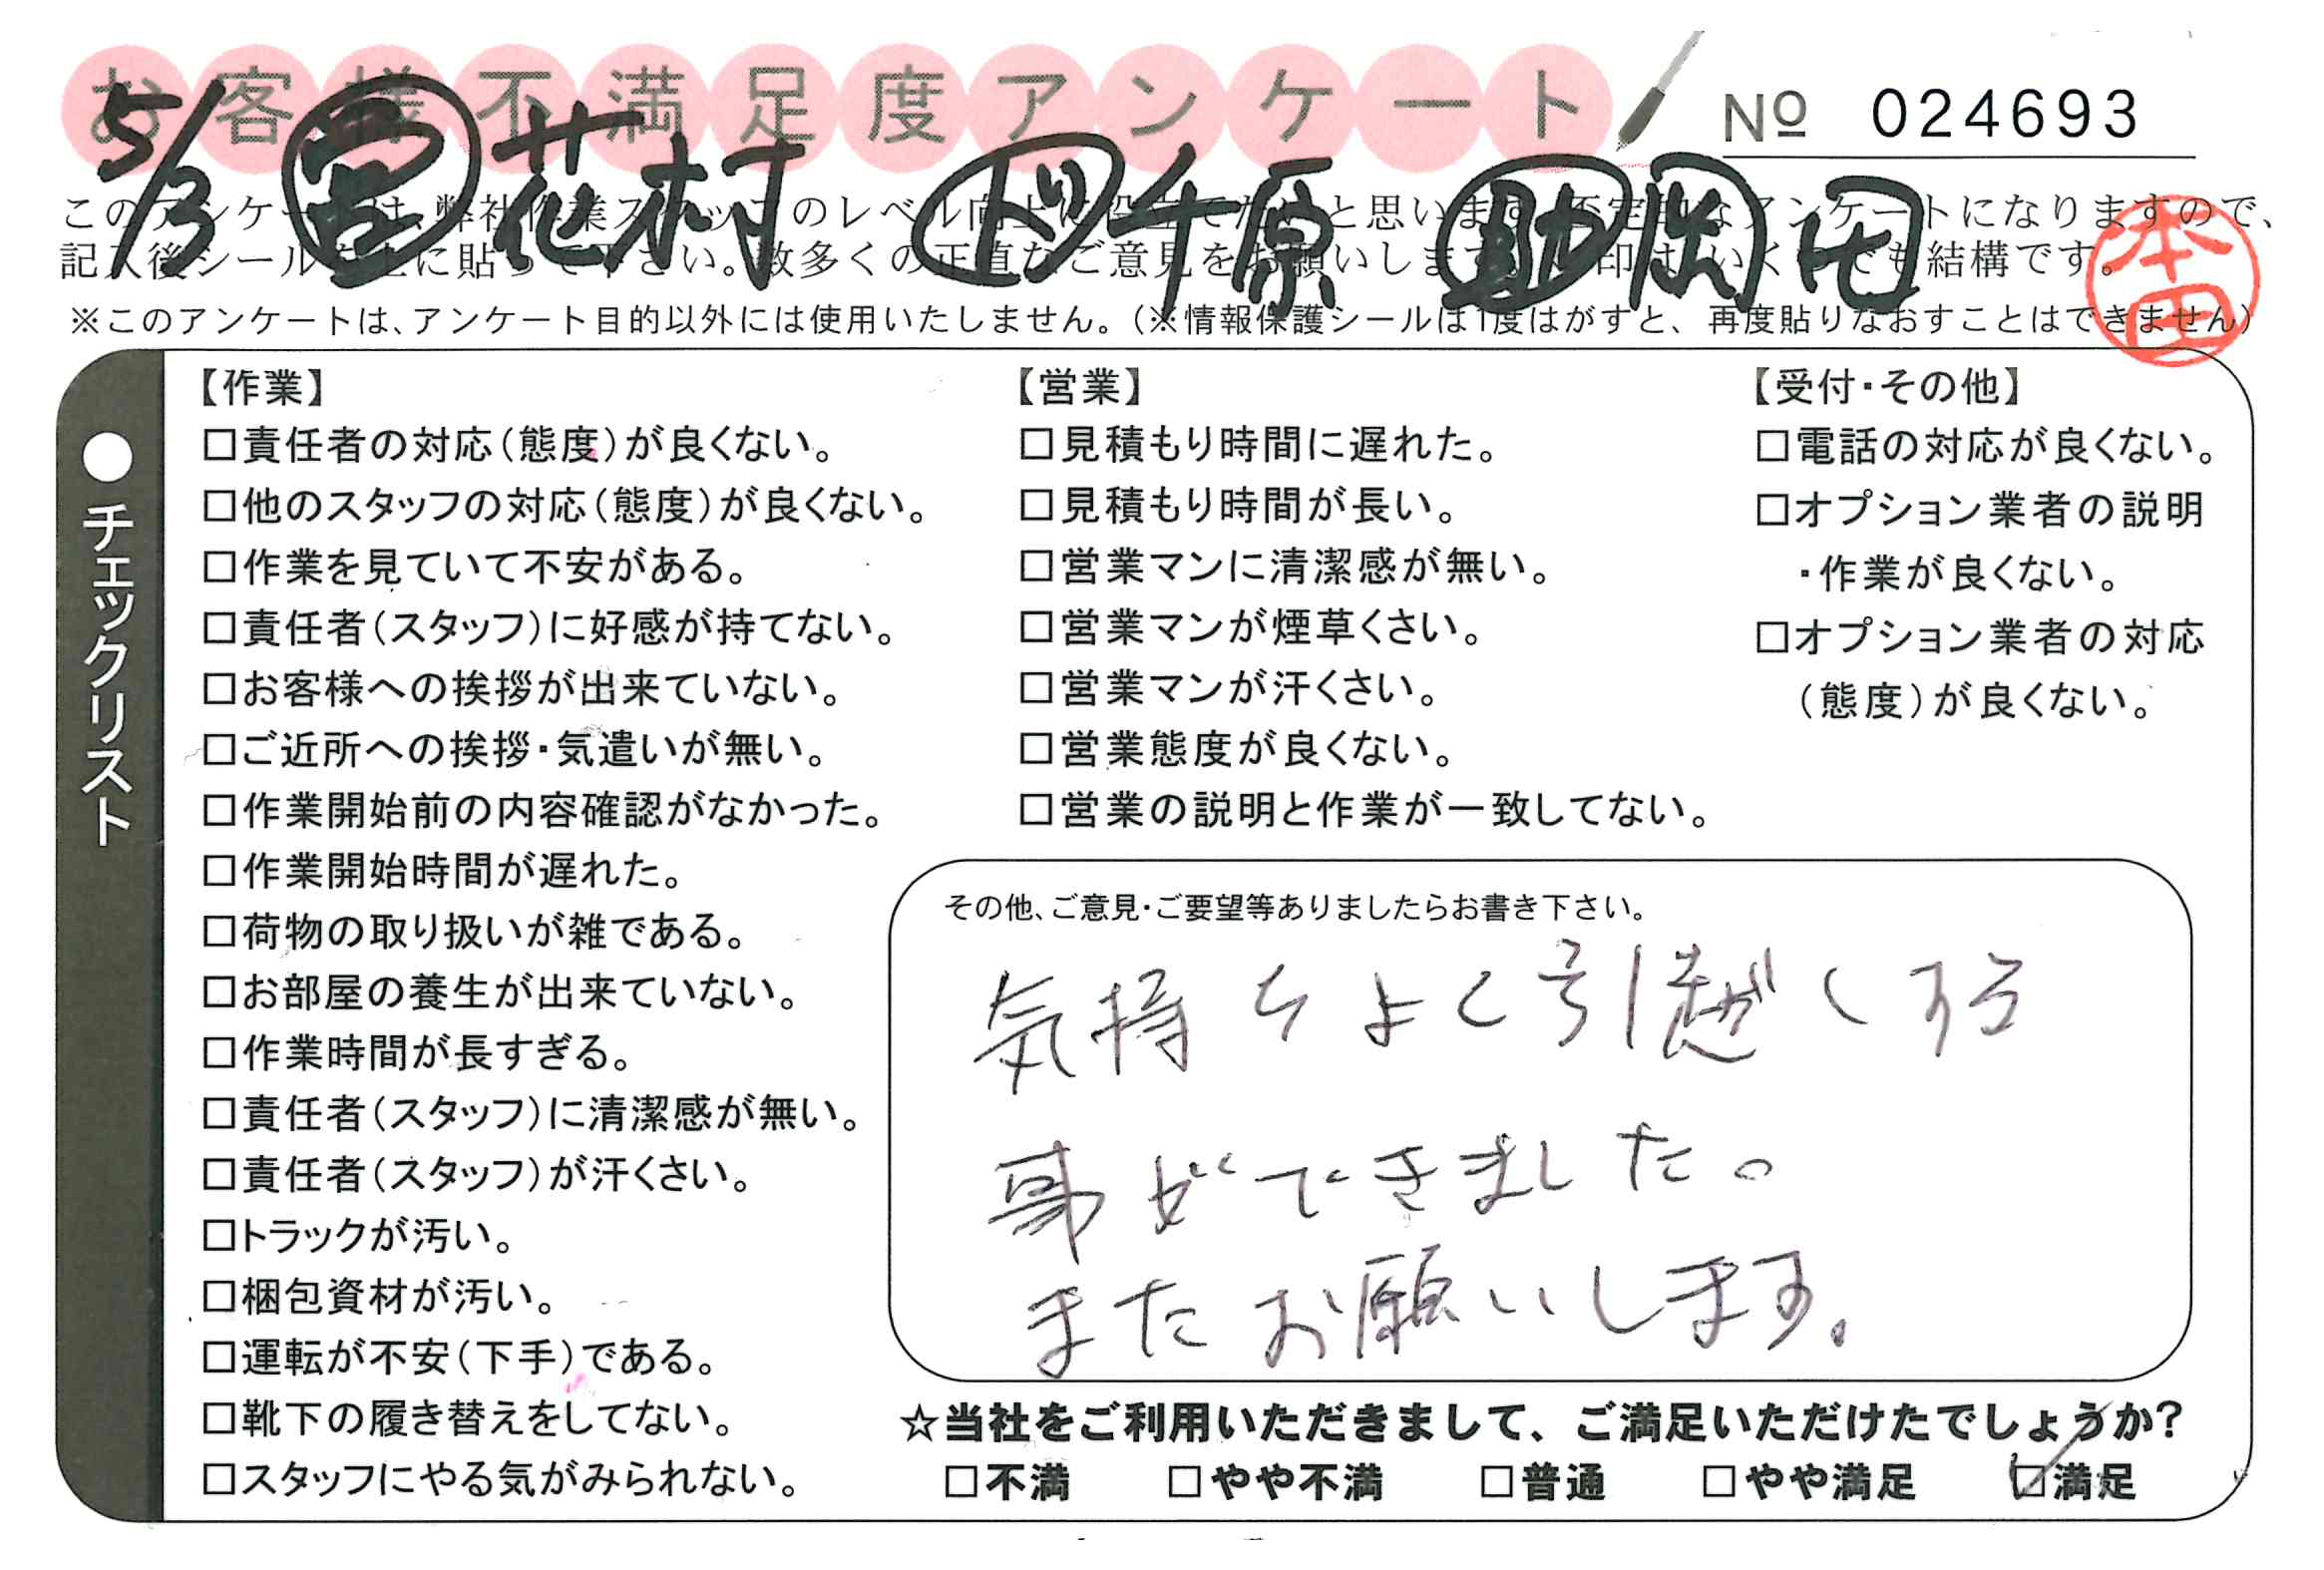 お客様不満足度アンケート
№ 024693
5/3 営 花村 ド 千原 助 岡田
このアンケートは、弊社作業スタッフのレベル向上に役立てたいと思います。否定的なアンケートになりますので、
記入後シールを上に貼って下さい。数多くの正直なご意見をお願いします。印はいくつでも結構です。
本田
※このアンケートは、アンケート目的以外には使用いたしません。(※情報保護シールは1度はがすと、再度貼りなおすことはできません)
●チェックリスト
【作業】
□責任者の対応(態度)が良くない。
□他のスタッフの対応(態度)が良くない。
□作業を見ていて不安がある。
□責任者(スタッフ)に好感が持てない。
□お客様への挨拶が出来ていない。
□ご近所への挨拶・気遣いが無い。
□作業開始前の内容確認がなかった。
□作業開始時間が遅れた。
□荷物の取り扱いが雑である。
□お部屋の養生が出来ていない。
□作業時間が長すぎる。
□責任者(スタッフ)に清潔感が無い。
□責任者(スタッフ)が汗くさい。
□トラックが汚い。
□梱包資材が汚い。
□運転が不安(下手)である。
□靴下の履き替えをしてない。
□スタッフにやる気がみられない。
【営業】
□見積もり時間に遅れた。
□見積もり時間が長い。
□営業マンに清潔感が無い。
□営業マンが煙草くさい。
□営業マンが汗くさい。
□営業態度が良くない。
□営業の説明と作業が一致してない。
【受付・その他】
□電話の対応が良くない。
□オプション業者の説明
・作業が良くない。
□オプション業者の対応
(態度)が良くない。
その他、ご意見・ご要望等ありましたらお書き下さい。
気持ちよく引越しする
事ができました。
またお願いします。
☆当社をご利用いただきまして、ご満足いただけたでしょうか?
□不満 □やや不満 □普通 □やや満足 ☑満足